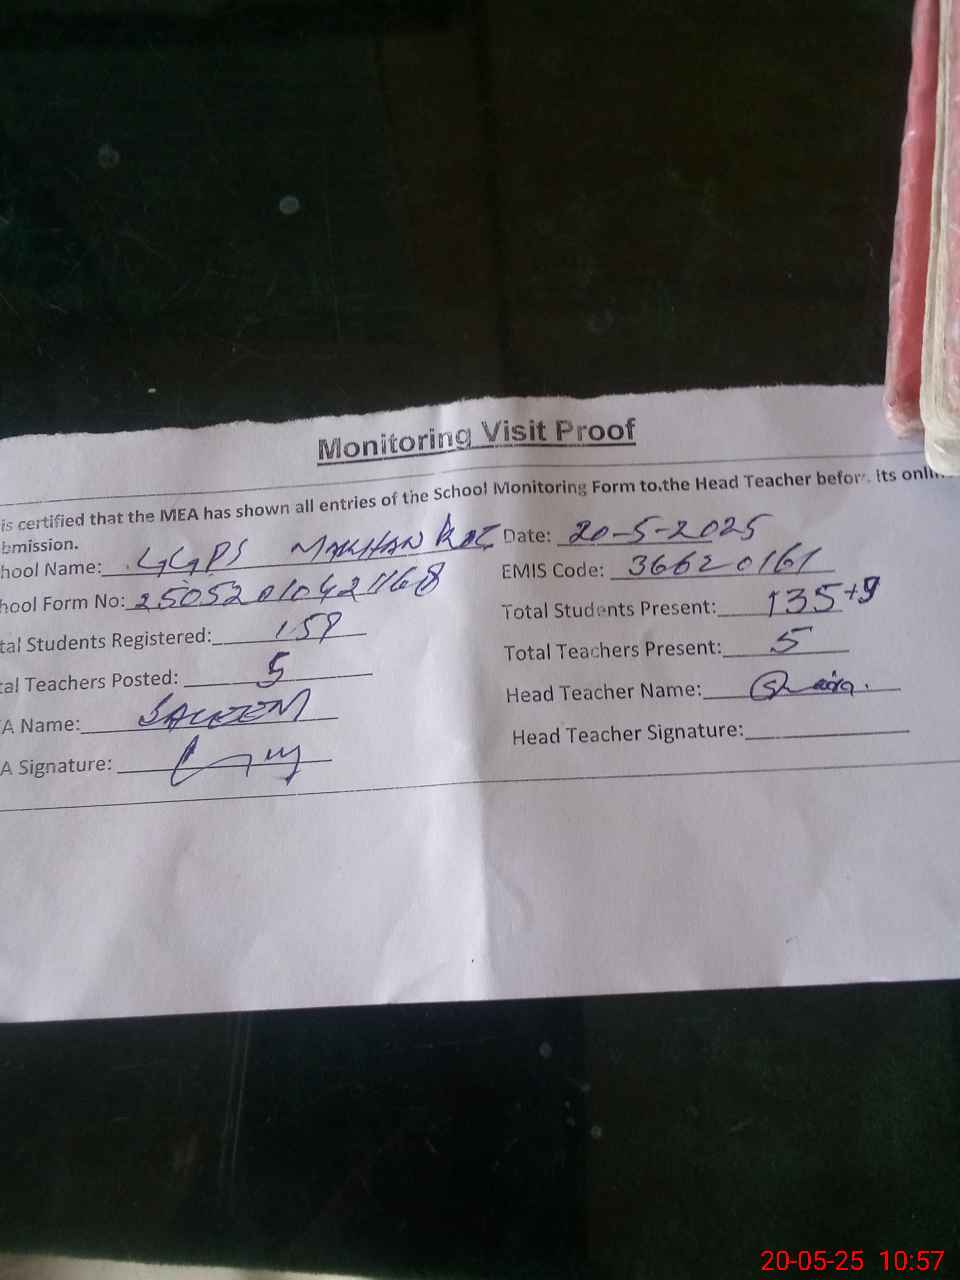 Monitoring Visit Proof
is certified that the MEA has shown all entries of the School Monitoring Form to.the Head Teacher before its onli
bmission.
hool Name: GGPS MAKHAN Date: 20-5-2025
hool Form No: 25052010421168 EMIS Code: 36620161
tal Students Registered: 158 Total Students Present: 135+9
tal Teachers Posted: 5 Total Teachers Present: 5
A Name: SALEEM Head Teacher Name:
A Signature: Head Teacher Signature:
20-05-25 10:57